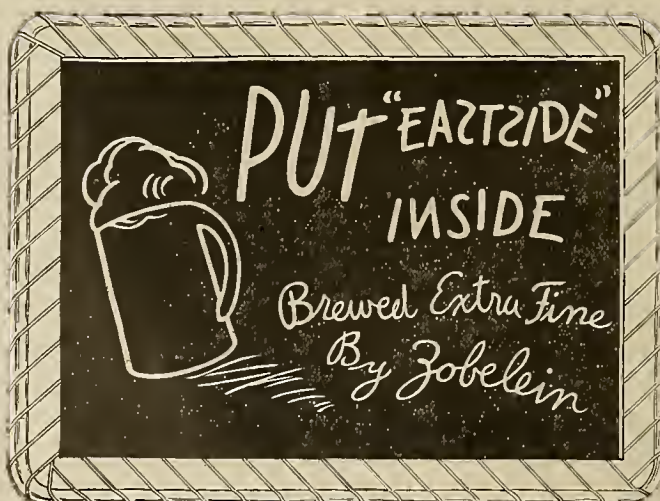 PUT "EASTSIDE"
INSIDE
Brewed Extra Fine
By Zobelein